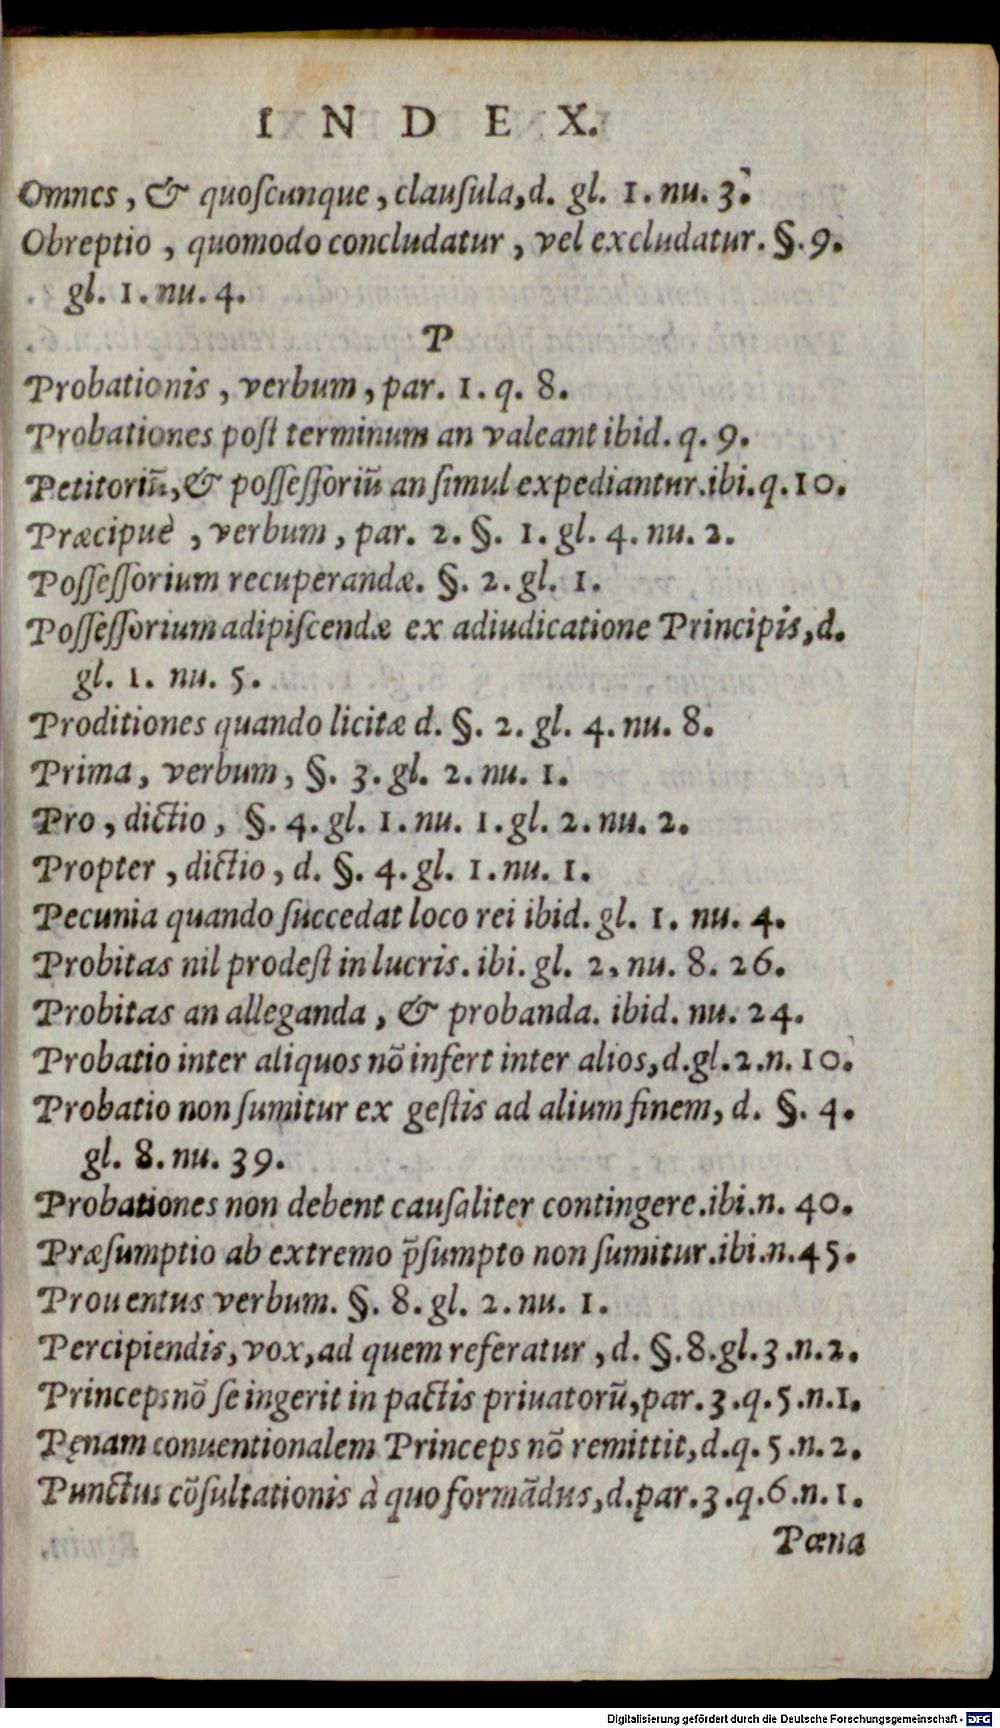 INDEX.
Omnes, & quoſcunque, clauſula, d. gl. 1. nu. 3.
Obreptio, quomodo concludatur, vel excludatur. §. 9.
gl. 1. nu. 4.
P
Probationis, verbum, par. 1. q. 8.
Probationes poſt terminum an valeant ibid. q. 9.
Petitoriũ, & poſſeſſoriũ an ſimul expediantur. ibi. q. 10.
Præcipuè, verbum, par. 2. §. 1. gl. 4. nu. 2.
Poſſeſſorium recuperandæ. §. 2. gl. 1.
Poſſeſſorium adipiſcendæ ex adiudicatione Principis, d.
gl. 1. nu. 5.
Proditiones quando licitæ d. §. 2. gl. 4. nu. 8.
Prima, verbum, §. 3. gl. 2. nu. 1.
Pro, dictio, §. 4. gl. 1. nu. 1. gl. 2. nu. 2.
Propter, dictio, d. §. 4. gl. 1. nu. 1.
Pecunia quando ſuccedat loco rei ibid. gl. 1. nu. 4.
Probitas nil prodeſt in lucris. ibi. gl. 2, nu. 8. 26.
Probitas an alleganda, & probanda. ibid. nu. 24.
Probatio inter aliquos nõ infert inter alios, d. gl. 2. n. 10.
Probatio non ſumitur ex geſtis ad alium finem, d. §. 4.
gl. 8. nu. 39.
Probationes non debent cauſaliter contingere. ibi. n. 40.
Præſumptio ab extremo p̃ſumpto non ſumitur. ibi. n. 45.
Prouentus verbum. §. 8. gl. 2. nu. 1.
Percipiendis, vox, ad quem referatur, d. §. 8. gl. 3. n. 2.
Princeps nõ ſe ingerit in pactis priuatorũ, par. 3. q. 5. n. 1.
Pęnam conuentionalem Princeps nõ remittit, d. q. 5. n. 2.
Punctus cõſultationis à quo formãdus, d. par. 3. q. 6. n. 1.
Pœna
Digitalisierung gefördert durch die Deutsche Forschungsgemeinschaft - DFG